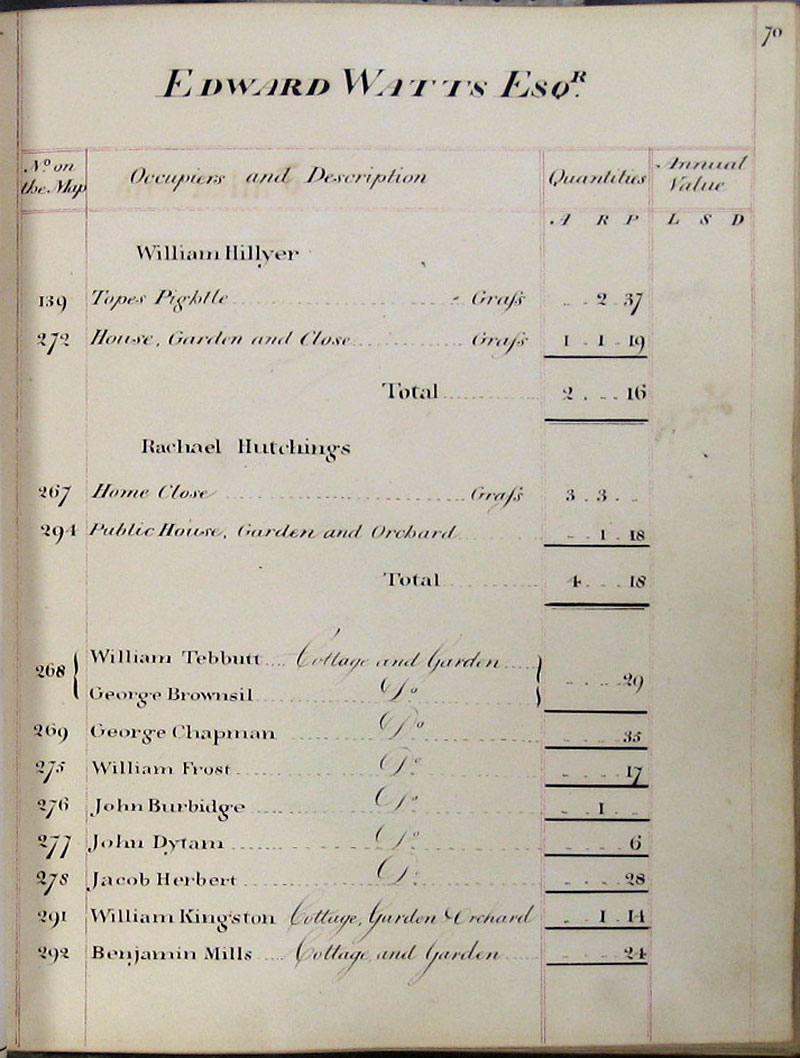 70
EDWARD WATTS ESQR.
No. on the Map Occupiers and Description Quantities Annual Value
A R P L S D
William Hillyer
139 Topes Pightle Graſs 2 37
272 House, Garden and Close Graſs 1 1 19
Total 2 16
Rachael Hutchings
267 Home Close Graſs 3 3
294 Public House, Garden and Orchard 1 18
Total 4 18
268 William Tebbutt Cottage and Garden 29
George Brownsil Do
269 George Chapman Do 35
275 William Frost Do 17
276 John Burbidge Do 1
277 John Dytam Do 6
278 Jacob Herbert Do 28
291 William Kingston Cottage, Garden & Orchard 1 14
292 Benjamin Mills Cottage and Garden 24